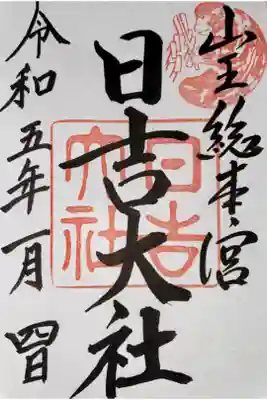 山王総本宮
日吉大社
日吉大社
令和五年一月四日